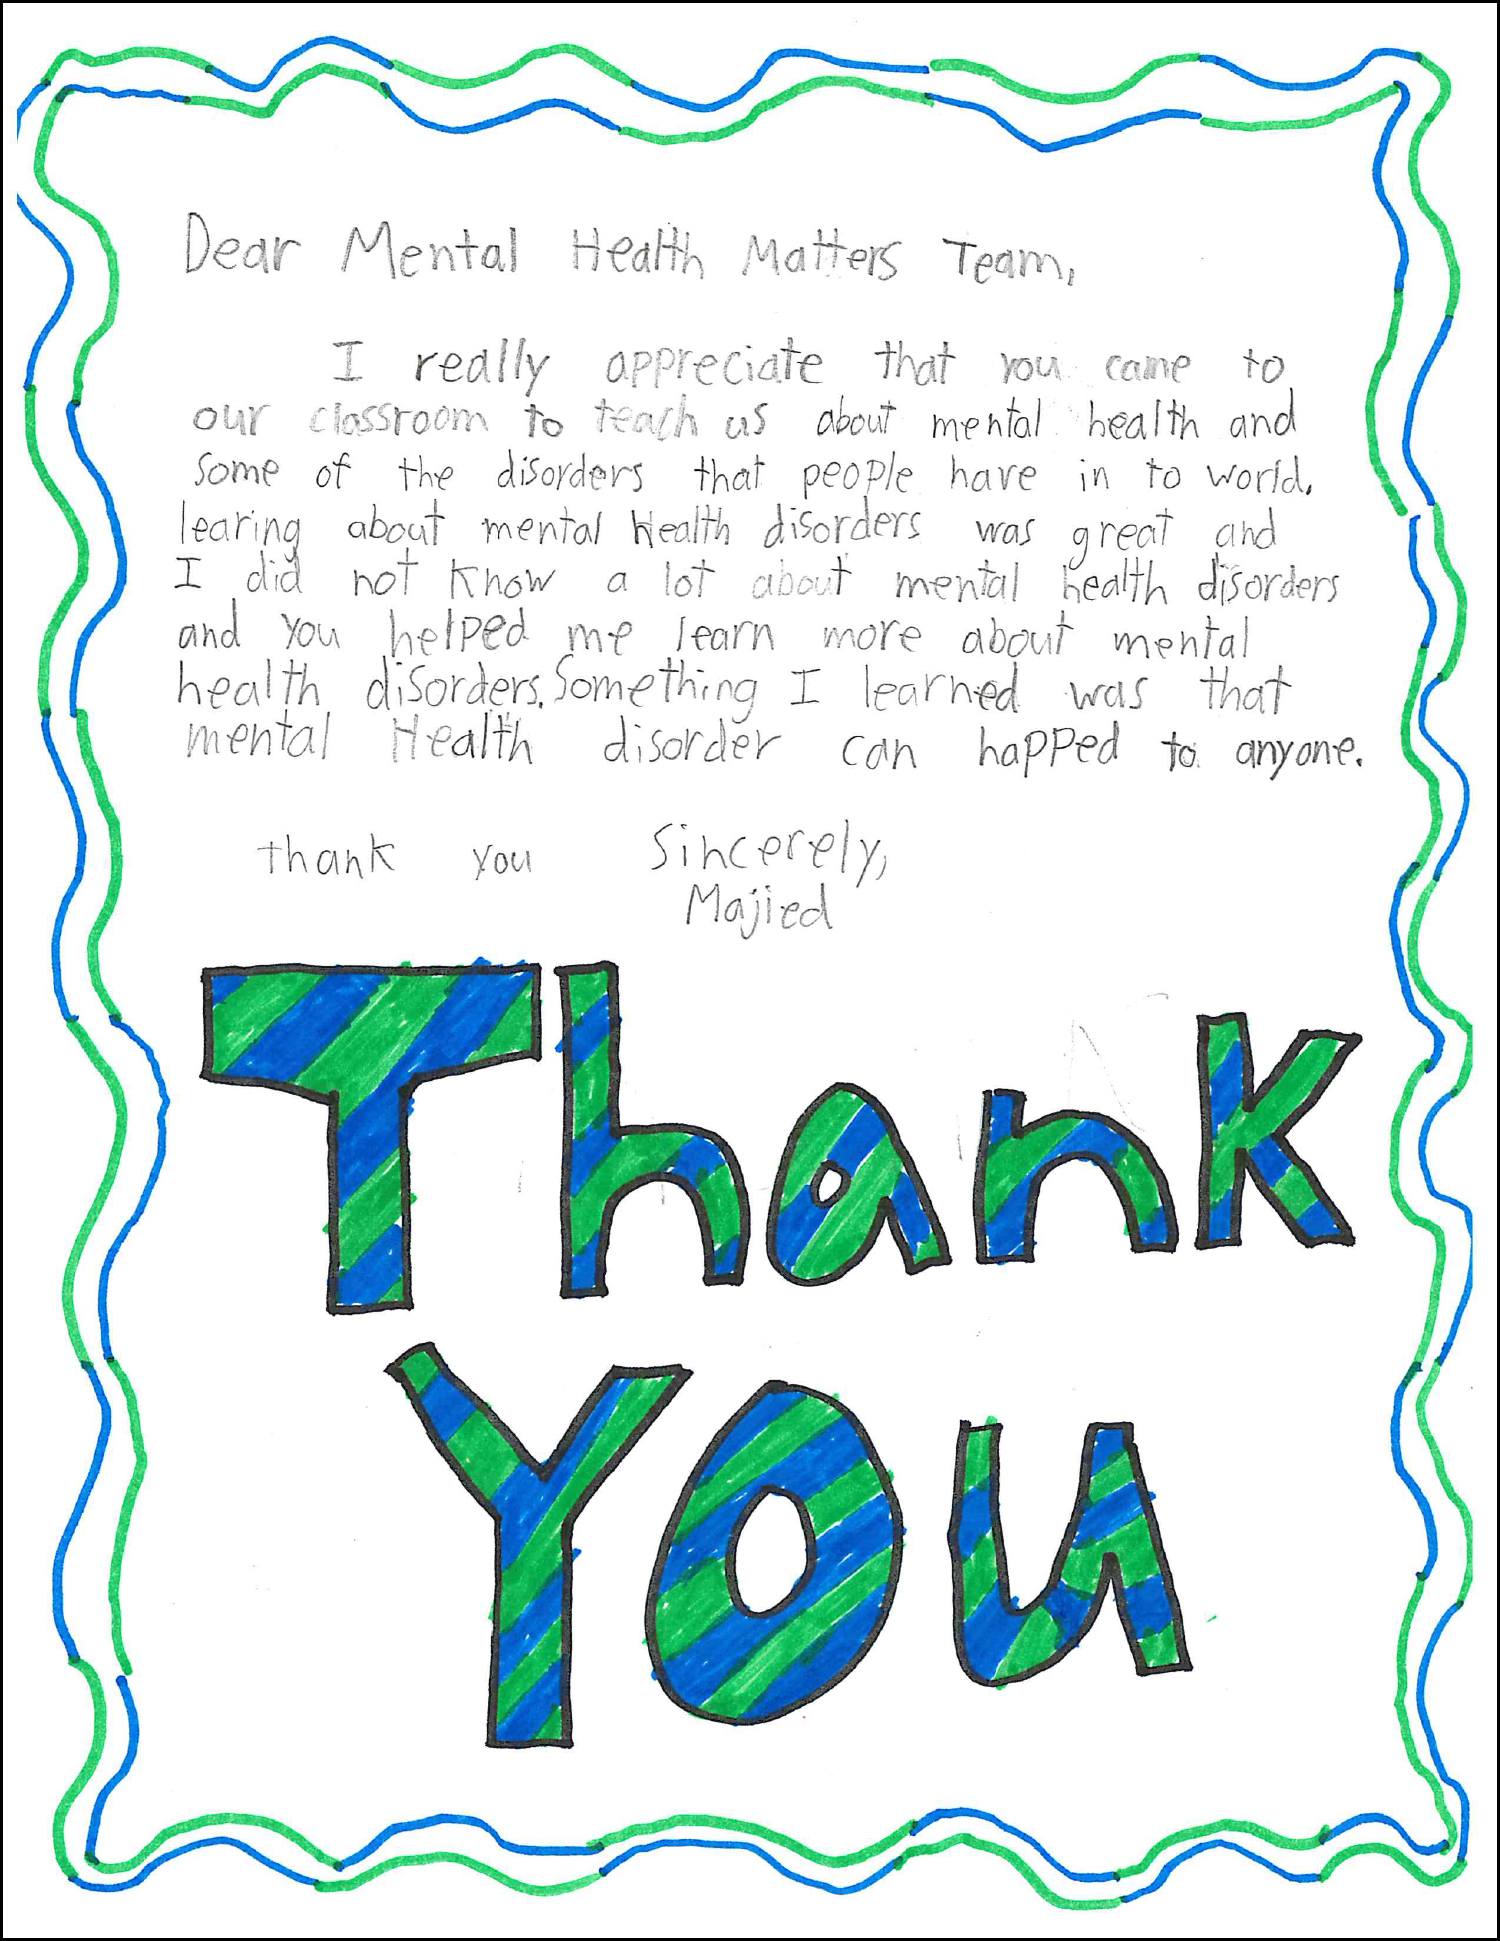 Dear Mental Health Matters Team,
I really appreciate that you came to
our classroom to teach us about mental health and
some of the disorders that people have in to world.
learing about mental Health disorders was great and
I did not know a lot about mental health disorders
and you helped me learn more about mental
health disorders. Something I learned was that
mental Health disorder can happed to anyone.
thank you Sincerely,
Majied
Thank
You